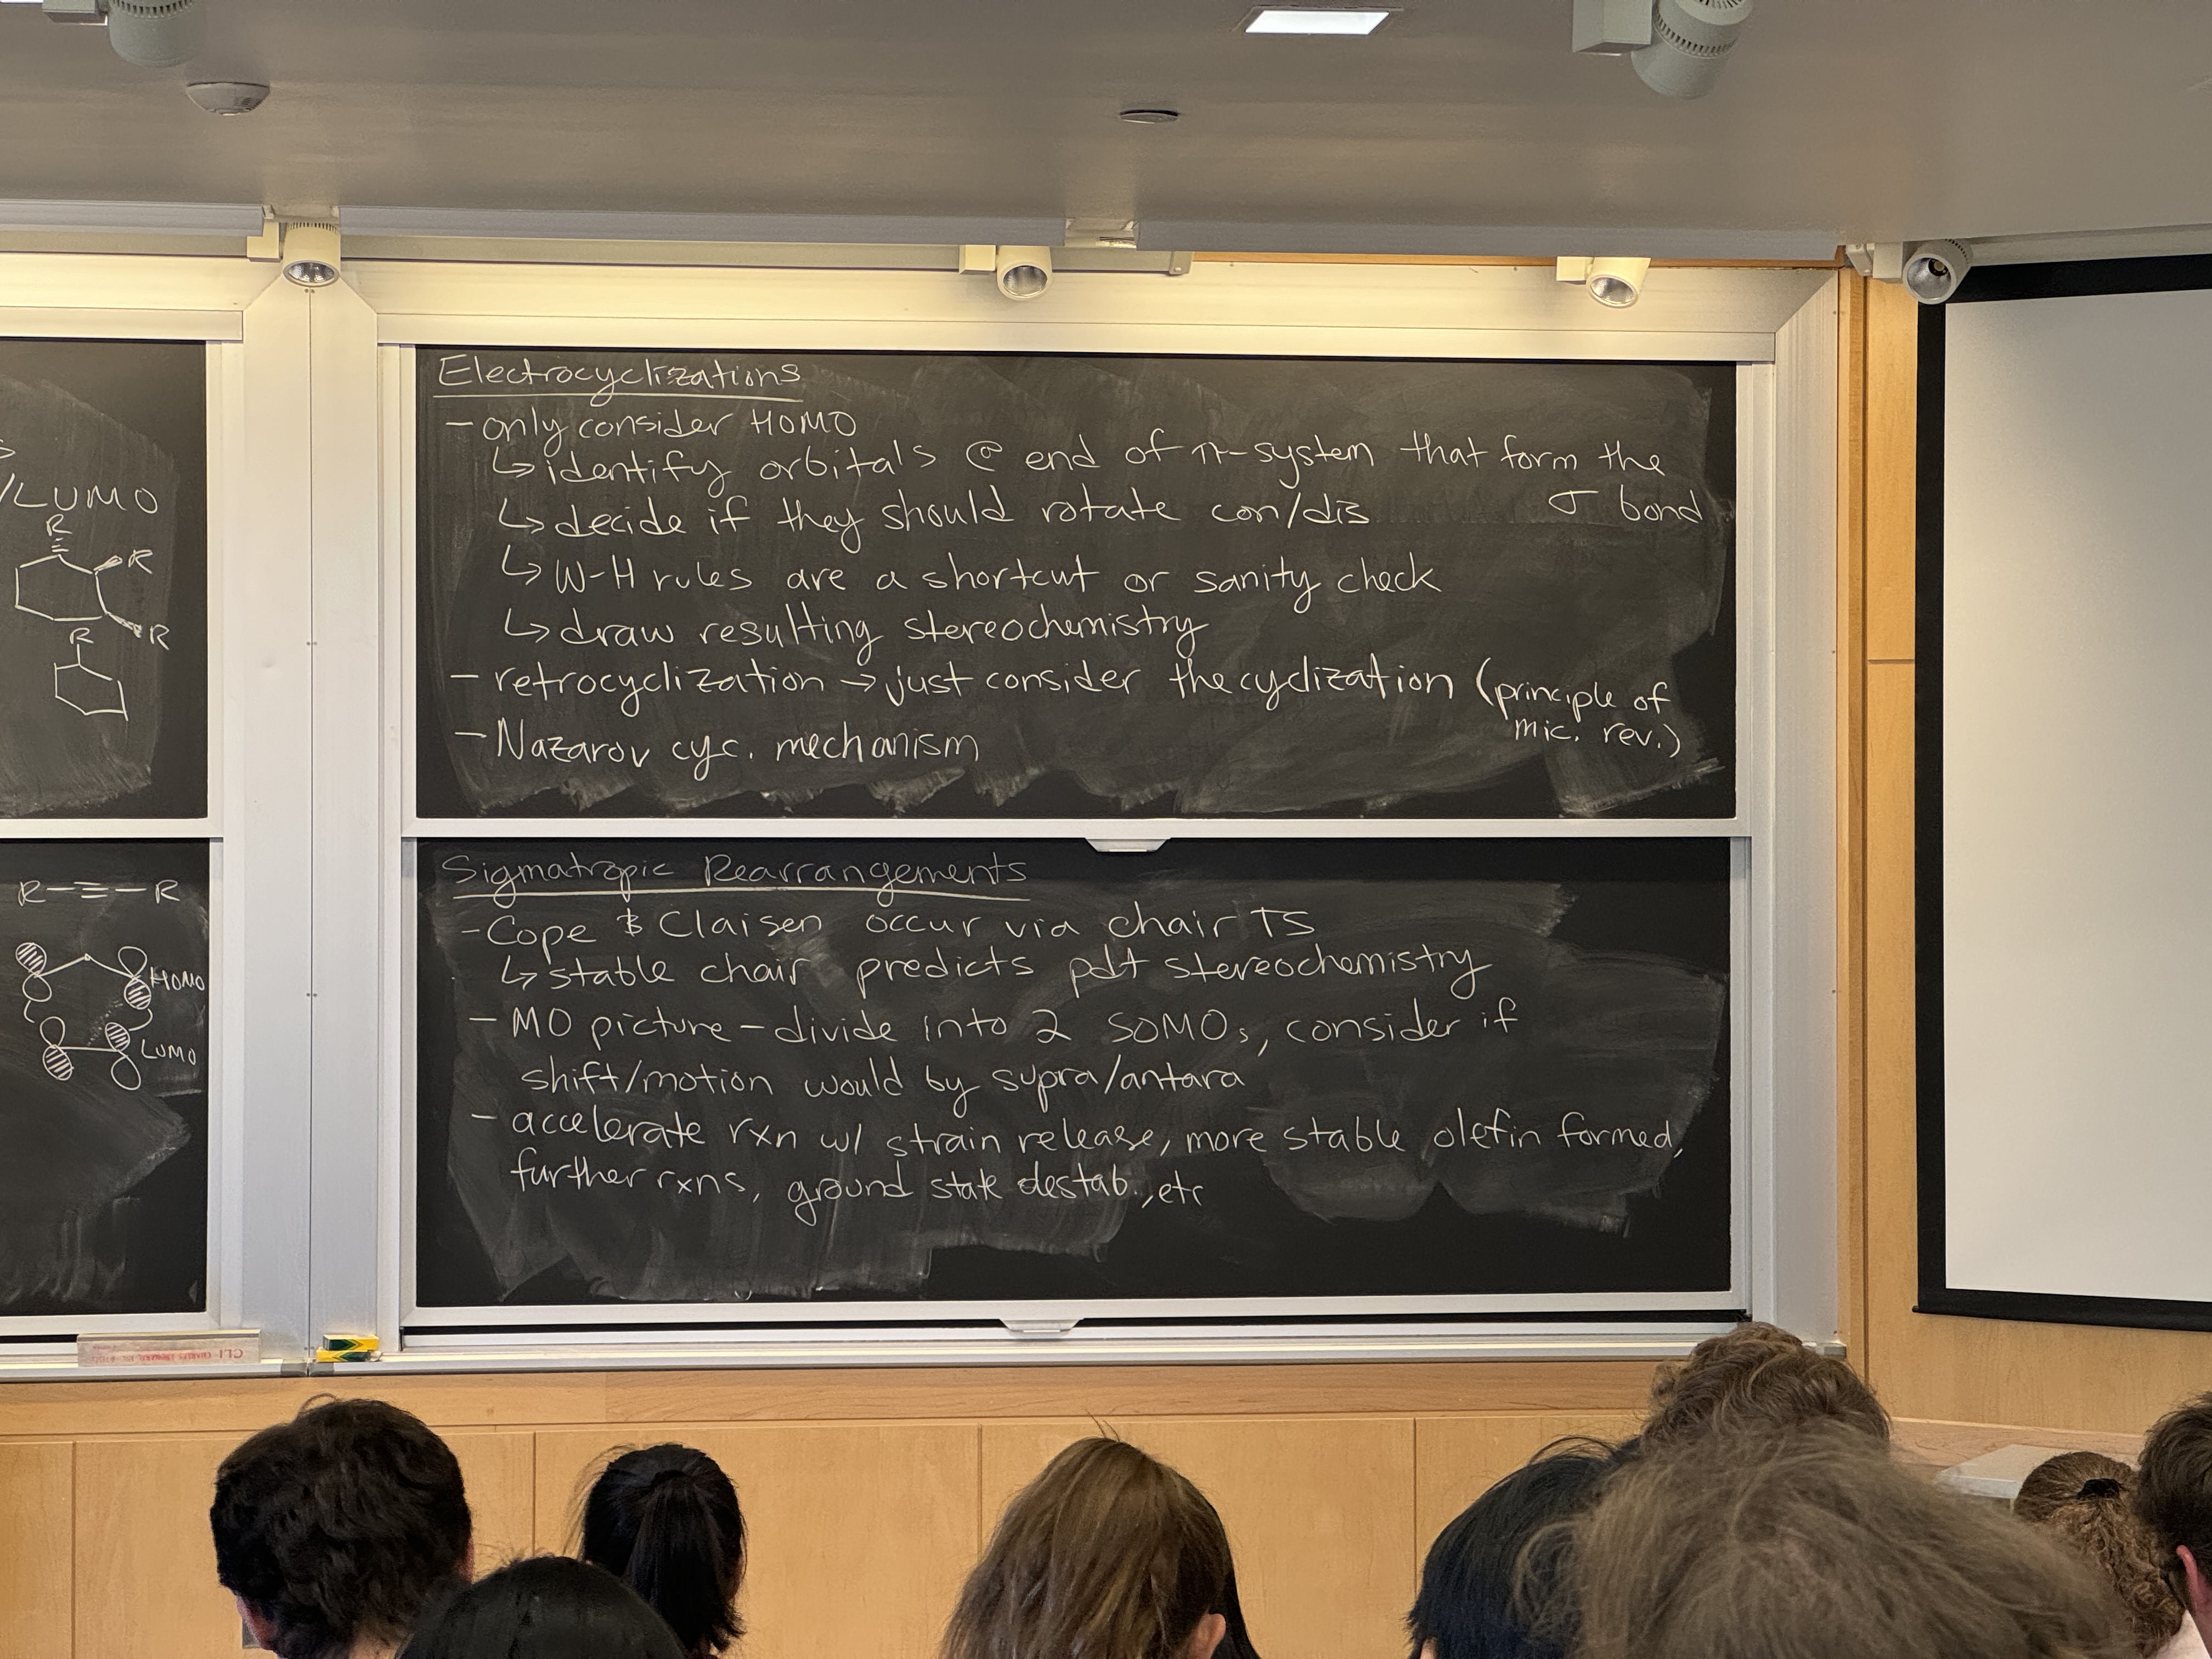 /LUMO
R
R
R
R
R-≡-R
HOMO
LUMO
Electrocyclizations
- only consider HOMO
↳ identify orbitals @ end of π-system that form the
σ bond
↳ decide if they should rotate con/dis
↳ W-H rules are a shortcut or sanity check
↳ draw resulting stereochemistry
- retrocyclization → just consider the cyclization (principle of
mic. rev.)
- Nazarov cyc. mechanism
Sigmatropic Rearrangements
- Cope & Claisen occur via chair TS
↳ stable chair predicts pdt stereochemistry
- MO picture - divide into 2 SOMOs, consider if
shift/motion would by supra/antara
- accelerate rxn w/ strain release, more stable olefin formed,
further rxns, ground state destab., etc